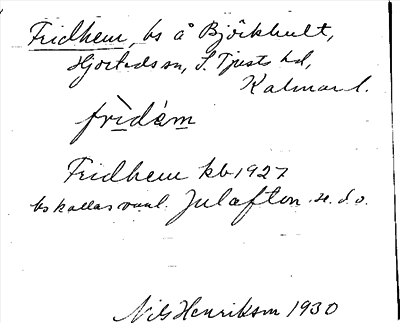 Fridhem, bs å Björkhult,
Hjorteds sn, S. Tjusts hd,
Kalmar l.
fridäm
Fridhem kb 1927
bs kallas vanl. Julafton. se. d. o.
Nils Henriksson 1930